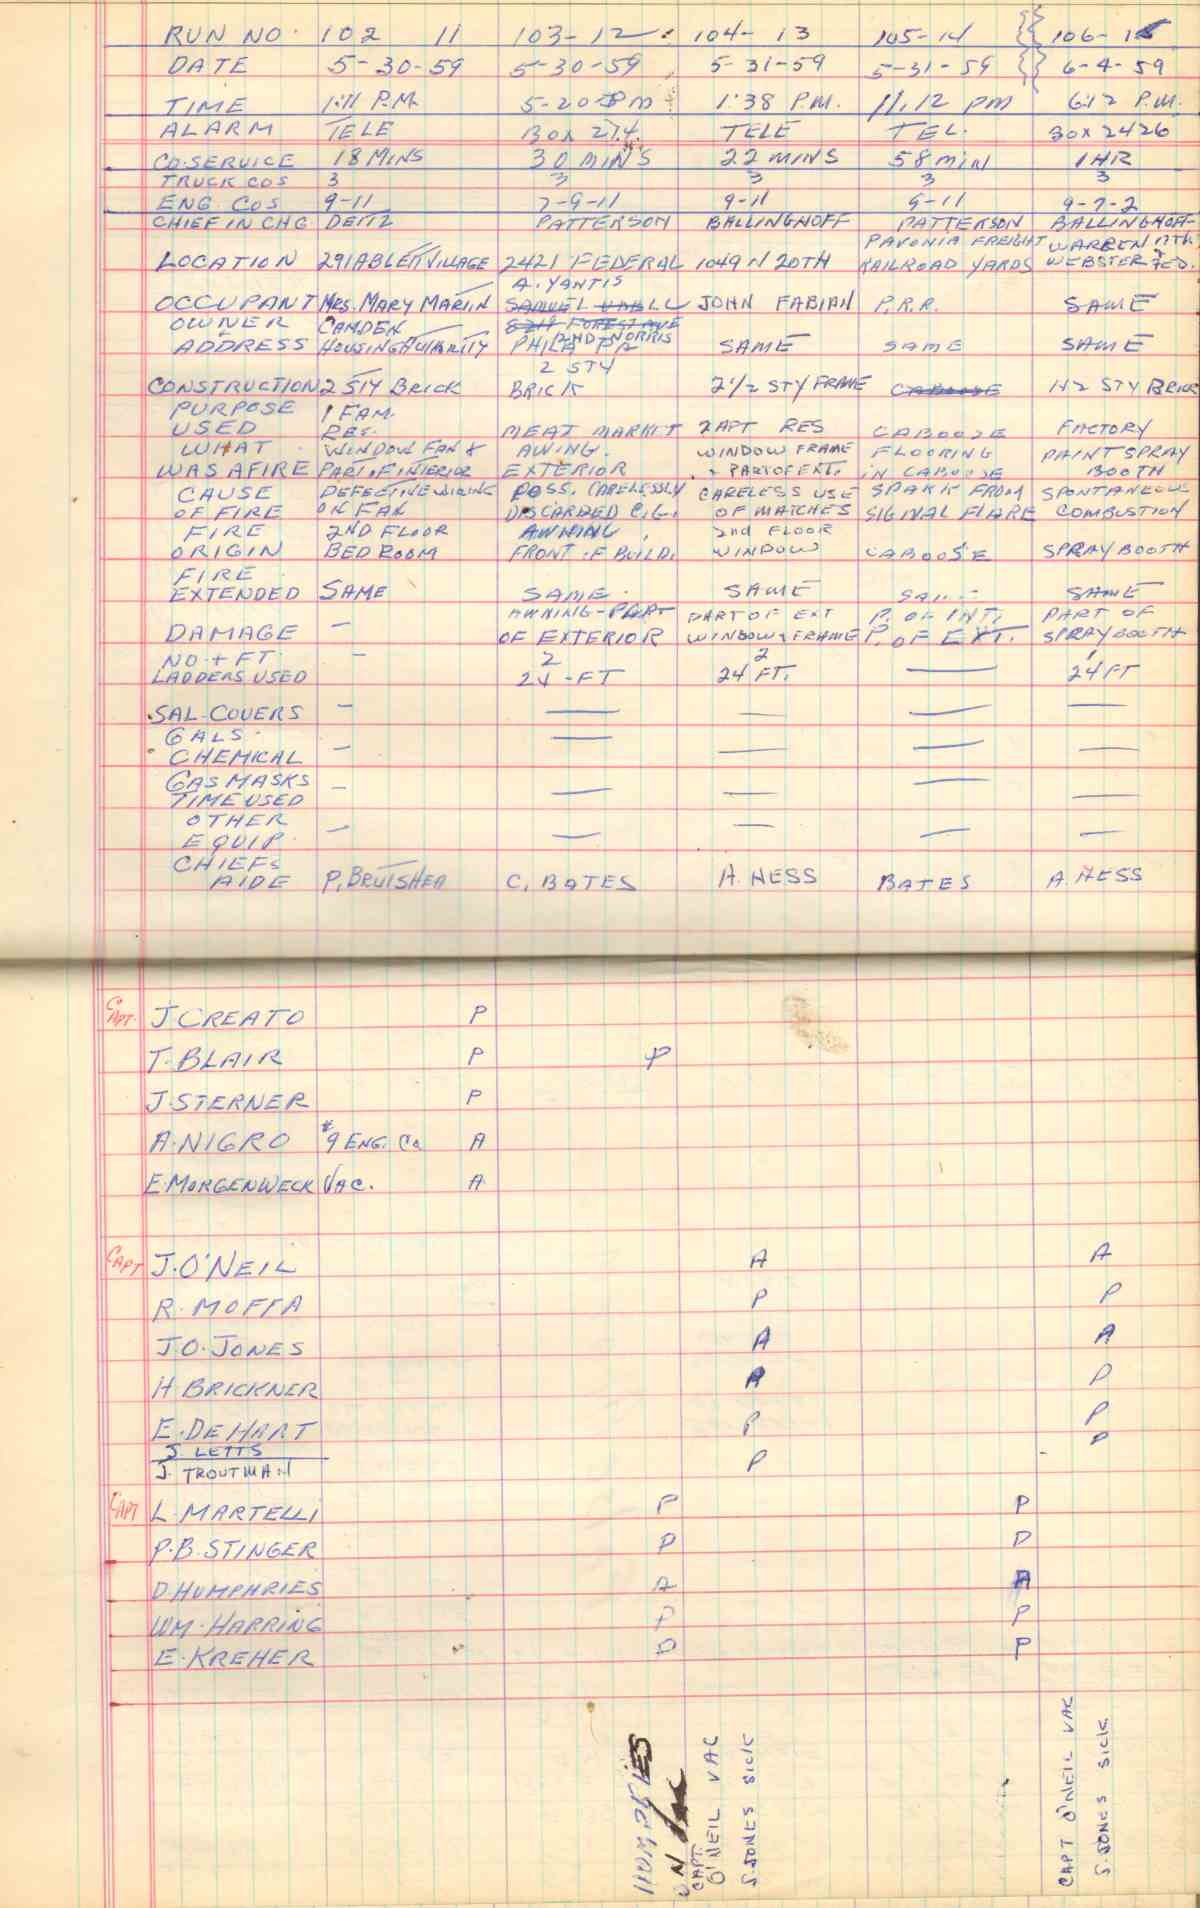 RUN NO. 102 11 103-12 104-13 105-14 106-15
DATE 5-30-59 5-30-59 5-31-59 5-31-59 6-4-59
TIME 1:11 P.M. 5-20 PM 1:38 P.M. 11,12 PM 6:12 P.M.
ALARM TELE BOX 274 TELE TEL. BOX 2426
CO-SERVICE 18 MINS 30 MINS 22 MINS 58 MIN 1 HR
TRUCK COS 3 3 3 3 3
ENG COS 9-11 7-9-11 9-11 9-11 9-7-2
CHIEF IN CHG DEITZ PATTERSON BALLINGHOFF PATTERSON BALLINGHOFF
PAVONIA FREIGHT WARREN
LOCATION 291 ABLETT VILLAGE 2421 FEDERAL 1049 N 20TH RAILROAD YARDS WEBSTER FED.
A. YANTIS
OCCUPANT MRS. MARY MARTIN SAMUEL JOHN FABIAN P.R.R. SAME
OWNER CAMDEN FOREST AVE
2ND NORRIS
ADDRESS HOUSING AUTHORITY PHILA PA SAME SAME SAME
2 STY
CONSTRUCTION 2 STY BRICK BRICK 2 1/2 STY FRAME CABOOSE 1+2 STY BRICK
PURPOSE 1 FAM.
USED RES. MEAT MARKET 2 APT RES CABOOSE FACTORY
WHAT WINDOW FAN & AWING. WINDOW FRAME FLOORING PAINT SPRAY
WAS AFIRE PART. OF INTERIOR EXTERIOR + PART OF EXT. IN CABOOSE BOOTH
CAUSE DEFECTIVE WIRING POSS. CARELESSLY CARELESS USE SPARK FROM SPONTANEOUS
OF FIRE ON FAN DISCARDED CIG. OF MATCHES SIGNAL FLARE COMBUSTION
FIRE 2ND FLOOR AWNING 2nd FLOOR
ORIGIN BEDROOM FRONT OF BUILD. WINDOW CABOOSE SPRAY BOOTH
FIRE
EXTENDED SAME SAME SAME SAME
AWNING-PART PART OF EXT P. OF INT. PART OF
DAMAGE — OF EXTERIOR WINDOW & FRAME P. OF EXT. SPRAY BOOTH
NO. + FT. — 2 2 — 1
LADDERS USED 24-FT 24 FT. 24 FT
SAL-COVERS — — — — —
GALS. —
CHEMICAL — — — —
GAS MASKS — —
TIME USED — — —
OTHER — —
EQUIP. — — —
CHIEFS
AIDE P. BRUTSHEA C. BATES A. HESS BATES A. HESS
CAPT. J. CREATO P
T. BLAIR P P
J. STERNER P
A. NIGRO #9 ENG. CO A
E. MORGENWECK VAC. A
CAPT J. O'NEIL A A
R. MOFFA P P
J.O. JONES A A
H BRICKNER A P
E. DEHART P P
J. LETTS P
J. TROUTMAN P
CAPT L. MARTELLI P P
P.B. STINGER P P
D. HUMPHRIES A A
WM. HARRING P P
E. KREHER P P
HUMPHRIES
ON
CAPT.
O'NEIL VAC
S. JONES SICK
CAPT O'NEIL VAC
S. JONES SICK